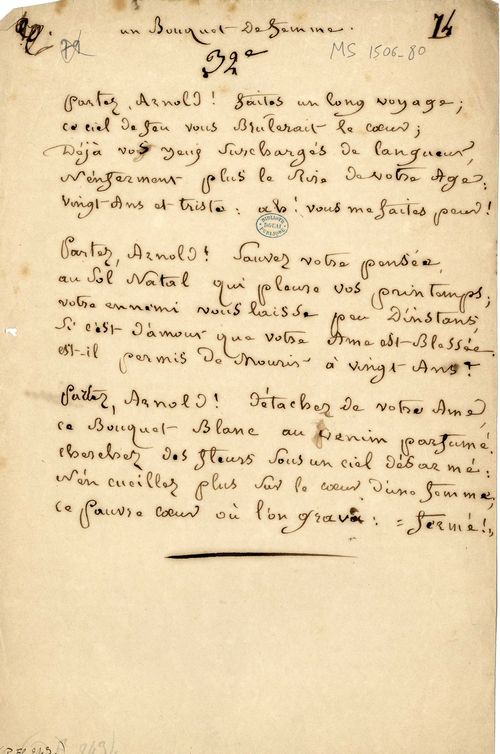 un Bouquet De femme.
74
32e
MS 1506-80
Partez, Arnold ! faites un long voyage ;
ce ciel de feu vous Brûlerait le cœur ;
Déjà vos yeux surchargés de langueur,
N'enferment plus le Rire de votre Age :
vingt Ans et triste : ah ! vous me faites peur !
Partez, Arnold ! Sauvez votre pensée,
au Sol Natal qui pleure vos printemps ;
votre ennemi vous laisse peu D'instans,
Si c'est d'amour que votre Ame est Blessée
est-il permis de Mourir à vingt Ans ?
Partez, Arnold ! détachez de votre Ame,
ce Bouquet Blanc au venin parfumé.
cherchez des fleurs sous un ciel désarmé :
N'en cueillez plus sur le cœur d'une femme,
ce pauvre cœur où l'on grava : = fermé ! »